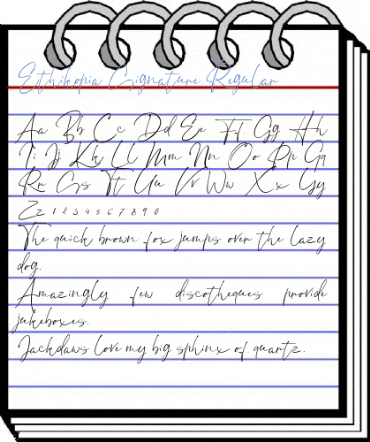 Ethikopia Signature Regular
Aa Bb Cc Dd Ee Ff Gg Hh
Ii Jj Kk Ll Mm Nn Oo Pp Qq
Rr Ss Tt Uu Vv Ww Xx Yy
Zz 1 2 3 4 5 6 7 8 9 0
The quick brown fox jumps over the lazy
dog.
Amazingly few discotheques provide
jukeboxes.
Jackdaws love my big sphinx of quartz.